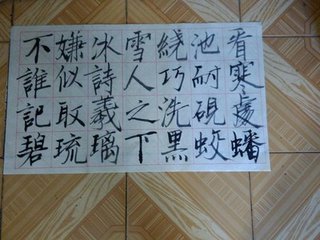 看寒蟠
池耐硯蛟
繞巧洗黑
雪人之下
冰詩義璃
嫌似取琉
不誰記碧